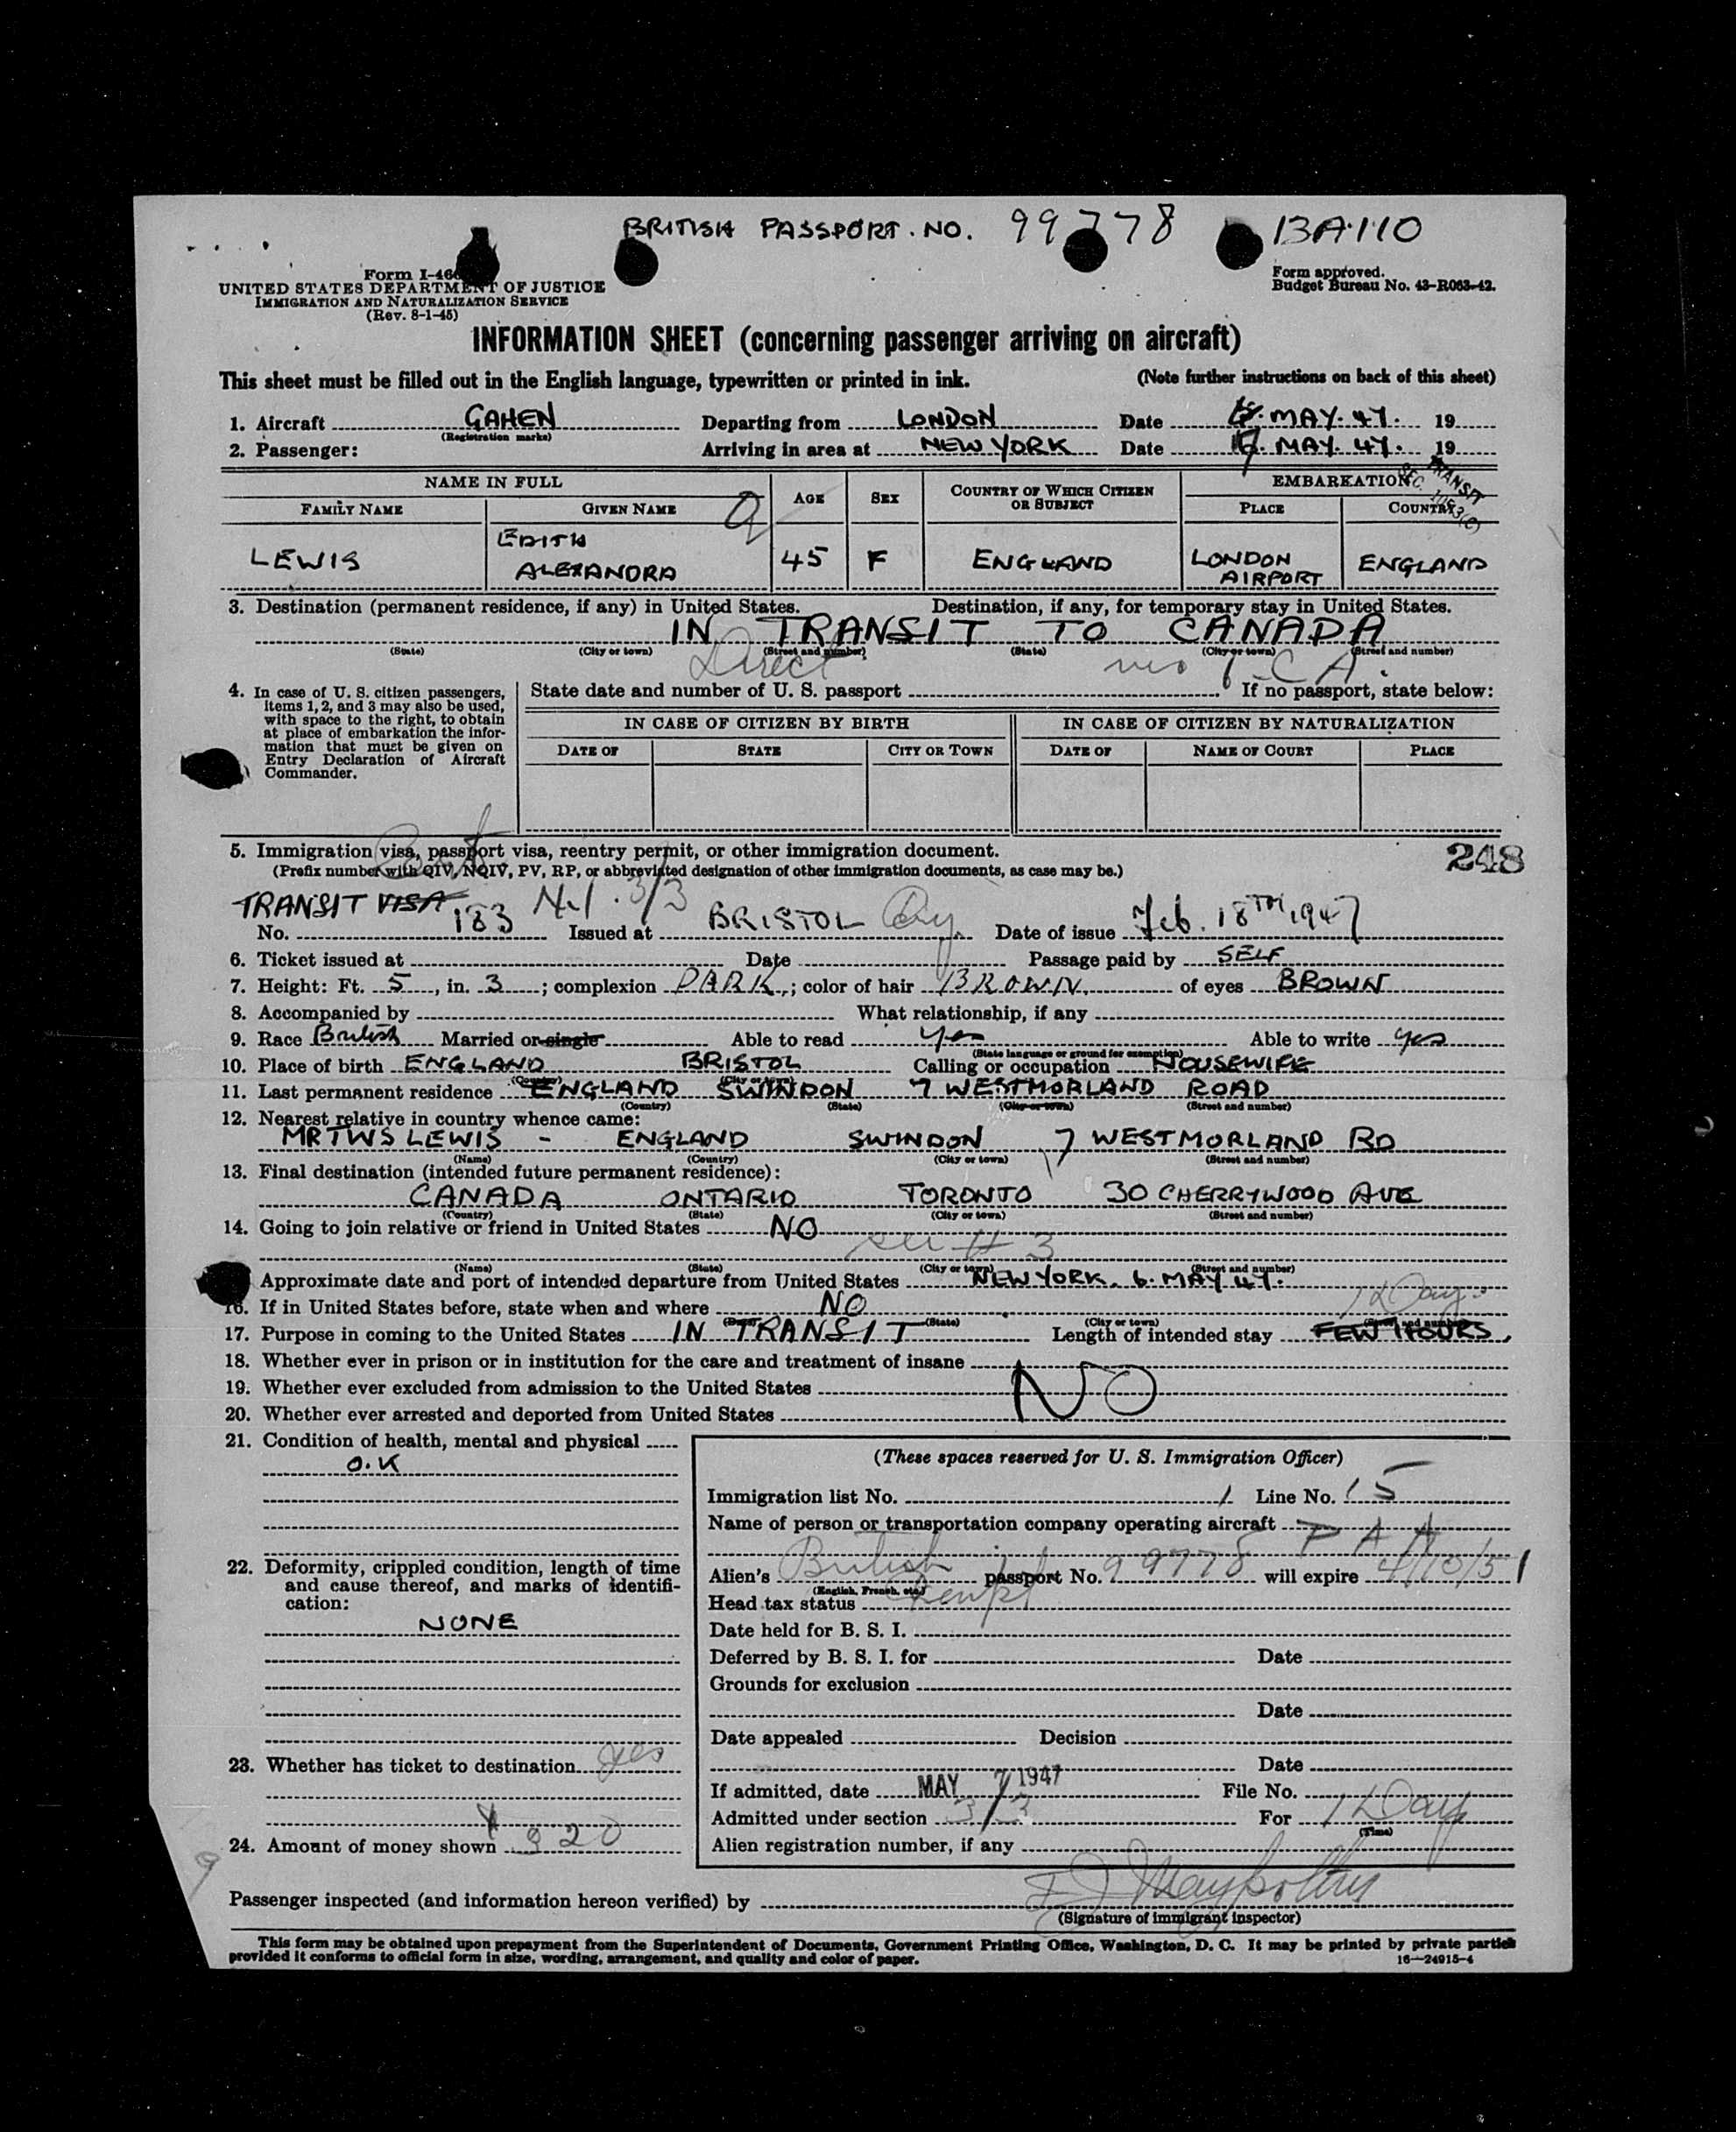 BRITISH PASSPORT. NO. 99778 BA110
Form I-466
UNITED STATES DEPARTMENT OF JUSTICE
IMMIGRATION AND NATURALIZATION SERVICE
(Rev. 8-1-45)
Form approved.
Budget Bureau No. 43-R063-42.
INFORMATION SHEET (concerning passenger arriving on aircraft)
This sheet must be filled out in the English language, typewritten or printed in ink. (Note further instructions on back of this sheet)
1. Aircraft GAHEN Departing from LONDON Date MAY. 47. 19
(Registration marks)
2. Passenger: Arriving in area at NEW YORK Date MAY. 47. 19
TRANSIT
SEC.
NAME IN FULL AGE SEX COUNTRY OF WHICH CITIZEN OR SUBJECT EMBARKATION
FAMILY NAME GIVEN NAME PLACE COUNTRY
LEWIS EDITH ALEXANDRA 45 F ENGLAND LONDON AIRPORT ENGLAND
3. Destination (permanent residence, if any) in United States. Destination, if any, for temporary stay in United States.
IN TRANSIT TO CANADA
(State) (City or town) (Street and number) (State) (City or town) (Street and number)
Direct
4. In case of U. S. citizen passengers, items 1, 2, and 3 may also be used, with space to the right, to obtain at place of embarkation the information that must be given on Entry Declaration of Aircraft Commander.
State date and number of U. S. passport . If no passport, state below:
IN CASE OF CITIZEN BY BIRTH IN CASE OF CITIZEN BY NATURALIZATION
DATE OF STATE CITY OR TOWN DATE OF NAME OF COURT PLACE
5. Immigration visa, passport visa, reentry permit, or other immigration document. 248
(Prefix number with QIV, NQIV, PV, RP, or abbreviated designation of other immigration documents, as case may be.)
TRANSIT VISA 3/3
No. 183 Issued at BRISTOL Date of issue Feb. 18TH, 1947
6. Ticket issued at Date Passage paid by SELF
7. Height: Ft. 5, in. 3; complexion DARK,; color of hair BROWN. of eyes BROWN
8. Accompanied by What relationship, if any
9. Race British Married or single Able to read yes Able to write yes
(State language or ground for exemption)
10. Place of birth ENGLAND BRISTOL Calling or occupation HOUSEWIFE
(Country) (City or town)
11. Last permanent residence ENGLAND SWINDON 7 WESTMORLAND ROAD
(Country) (State) (City or town) (Street and number)
12. Nearest relative in country whence came:
MR TWS LEWIS - ENGLAND SWINDON 7 WESTMORLAND RD
(Name) (Country) (City or town) (Street and number)
13. Final destination (intended future permanent residence):
CANADA ONTARIO TORONTO 30 CHERRYWOOD AVE
(Country) (State) (City or town) (Street and number)
14. Going to join relative or friend in United States NO
see # 3
(Name) (State) (City or town) (Street and number)
Approximate date and port of intended departure from United States NEW YORK. 6. MAY 47.
16. If in United States before, state when and where NO 1 Day
(Date) (State) (City or town) (Street and number)
17. Purpose in coming to the United States IN TRANSIT Length of intended stay FEW HOURS.
18. Whether ever in prison or in institution for the care and treatment of insane
19. Whether ever excluded from admission to the United States NO
20. Whether ever arrested and deported from United States
21. Condition of health, mental and physical
O.K
22. Deformity, crippled condition, length of time and cause thereof, and marks of identification:
NONE
23. Whether has ticket to destination yes
24. Amount of money shown 320
(These spaces reserved for U. S. Immigration Officer)
Immigration list No. 1 Line No. 15
Name of person or transportation company operating aircraft P A A
Alien's British passport No. 99778 will expire 4/10/51
(English, French, etc.)
Head tax status Exempt
Date held for B. S. I.
Deferred by B. S. I. for Date
Grounds for exclusion
Date
Date appealed Decision
Date
If admitted, date MAY 7 1947 File No.
Admitted under section 3/3 For 1 Day
(Time)
Alien registration number, if any
Passenger inspected (and information hereon verified) by
(Signature of immigrant inspector)
This form may be obtained upon prepayment from the Superintendent of Documents, Government Printing Office, Washington, D. C. It may be printed by private parties
provided it conforms to official form in size, wording, arrangement, and quality and color of paper. 16—24915-4